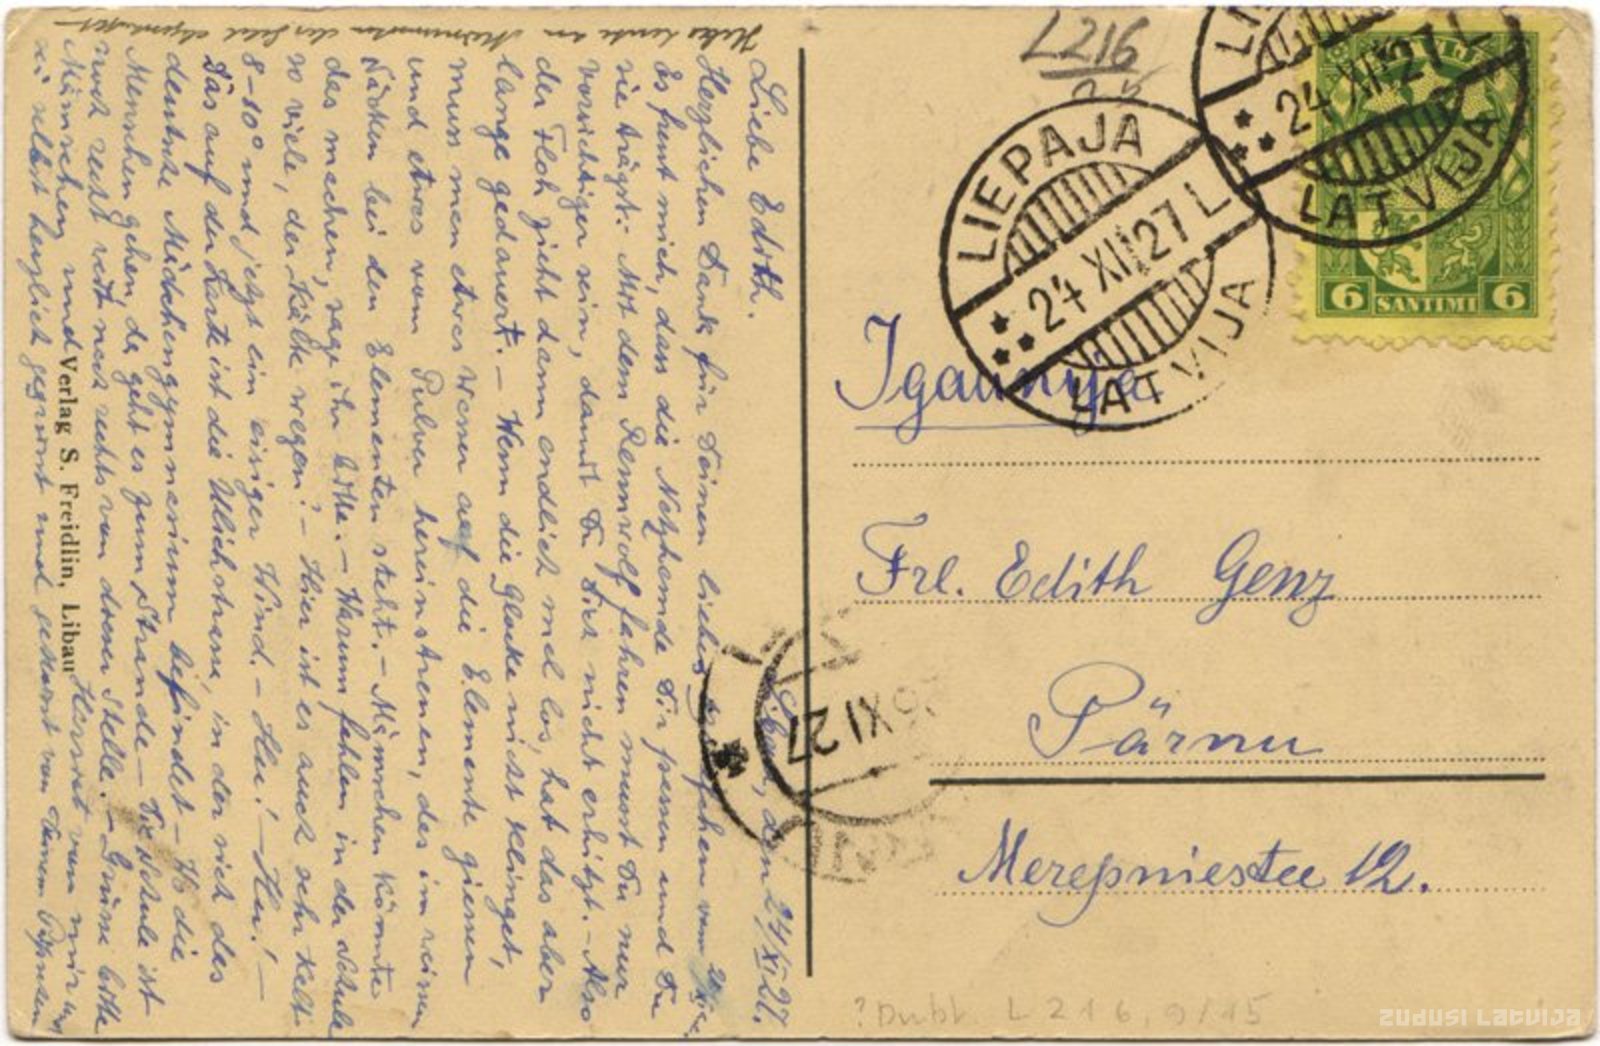 Libau, den 24/XI.27.
Liebe Edith.
Herzlichen Dank für Deinen lieben vom
Es freut mich, dass die Netzhemde Dir passen und Du
sie trägst. Mit dem Rennwolf fahren musst Du nur
vorsichtiger sein, damit Du Dich nicht erhitzt. – Also
der Floh zieht dann endlich mal los, hat das aber
lange gedauert. – Wenn die Glocke nicht klinget,
muss man etwas Wasser auf die Elemente giessen
und etwas vom Pulver hereinstreuen, das im weissen
bei den Elementen steht. – Mämschen könnte
das machen, sage ihr bitte. – Warum fehlen in der Schule
so viele, der Kälte wegen? – Hier ist es auch sehr kalt
8–10° und jetzt ein eisiger Wind. – Hu! – Hu! –
Das auf der Karte ist die Ulichstrasse, in der sich das
deutsche Mädchengymnasium befindet – Wo die
Menschen gehen, da geht es zum Strande – Die Schule ist
noch recht weit nach rechts von dieser Stelle. – Grüsse bitte
Mämschen und von mir u.
sei selbst herzlich gegrüsst und geküsst von Deinem
Verlag S. Freidlin, Libau
L216
LIEPAJA
24 XII 27 L
LATVIJA
24 XII 27 L
LATVIJA
6 SANTIMI 6
Igaunija
Frl. Edith Genz
Pärnu
Merepniestee 12.
XI 27
? Dubl. L 216, 9/15
ZUDUSI LATVIJA